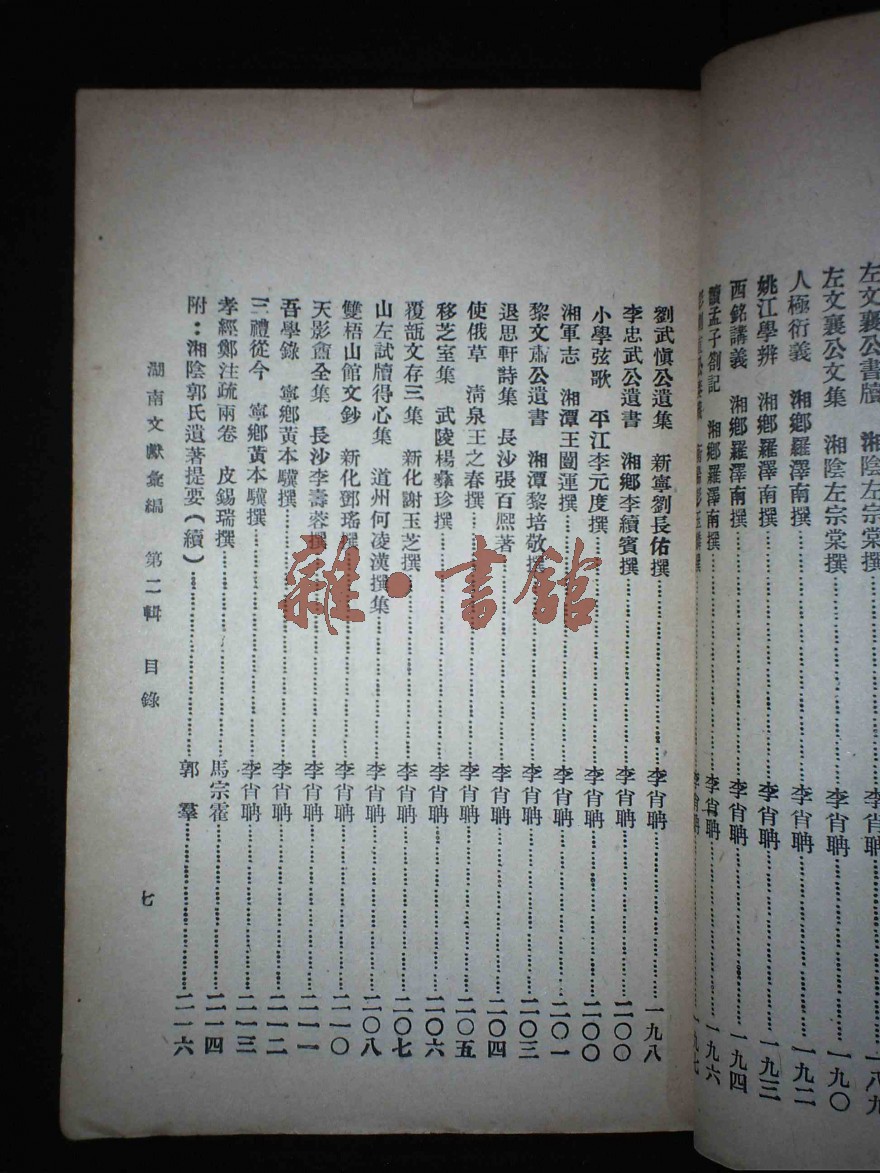 左文襄公書牘 湘陰左宗棠撰……李肖聃……一八九
左文襄公文集 湘陰左宗棠撰……李肖聃……一九〇
人極衍義 湘鄉羅澤南撰……李肖聃……一九二
姚江學辨 湘鄉羅澤南撰……李肖聃……一九三
西銘講義 湘鄉羅澤南撰……李肖聃……一九四
讀孟子劄記 湘鄉羅澤南撰……李肖聃……一九六
李肖聃……一九七
劉武慎公遺集 新寧劉長佑撰……李肖聃……一九八
李忠武公遺書 湘鄉李續賓撰……李肖聃……二〇〇
小學弦歌 平江李元度撰……李肖聃……二〇〇
湘軍志 湘潭王闓運撰……李肖聃……二〇一
黎文肅公遺書 湘潭黎培敬撰……李肖聃……二〇三
退思軒詩集 長沙張百熙著……李肖聃……二〇四
使俄草 清泉王之春撰……李肖聃……二〇五
移芝室集 武陵楊彝珍撰……李肖聃……二〇六
覆瓿文存三集 新化謝玉芝撰……李肖聃……二〇七
山左試牘得心集 道州何凌漢撰集……李肖聃……二〇八
雙梧山館文鈔 新化鄧瑤撰……李肖聃……二一〇
天影盦全集 長沙李壽蓉撰……李肖聃……二一一
吾學錄 寧鄉黃本驥撰……李肖聃……二一二
三禮從今 寧鄉黃本驥撰……李肖聃……二一三
孝經鄭注疏兩卷 皮錫瑞撰……馬宗霍……二一四
附：湘陰郭氏遺著提要（續）……郭羣……二一六
湖南文獻彙編 第二輯 目錄 七
雜·書館